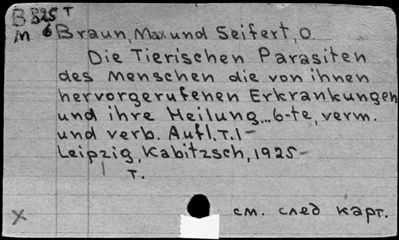 B 825 T
M 6 Braun, Max und Seifert, O.
Die Tierischen Parasiten
des Menschen die von ihnen
hervorgerufenen Erkrankungen
und ihre Heilung...6-te, verm.
und verb. Aufl. T. 1-
Leipzig, Kabitzsch, 1925-
T.
X см. след карт.